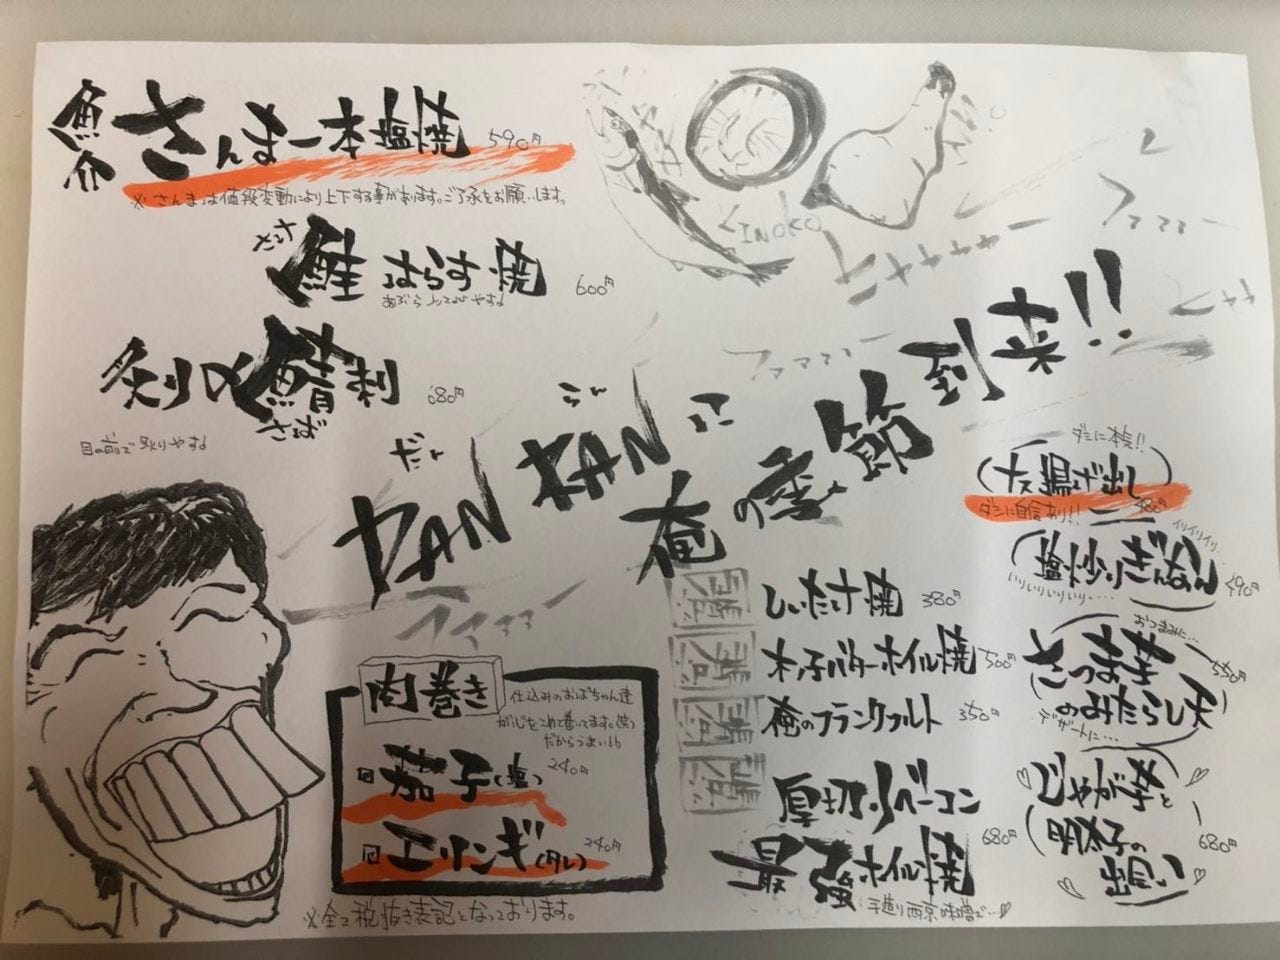 魚介
さんま一本塩焼 590円
※さんまは値段変動により上下する事があります。ご了承をお願いします。
鮭 はらす焼 600円
炙り〆鯖刺 680円
さば
目の前で炙りやす♩
KINOKO
だん
DANDANに
俺の季節到来!!
ダシに本気!!
ナス揚げ出し 480円
ダシに自信あり!!
イリイリイリ
塩炒りぎんなん 490円
いりいりいりいり・・・
おつまみに・・・
さつま芋 550円
のみたらし
デザートに・・・
じゃが芋と
明太子の 680円
出逢い
しいたけ焼 380円
木ノ子バターホイル焼 500円
俺のフランクフルト 350円
厚切りベーコン
最強ホイル焼 680円
手造り西京味噌で…♡
肉巻き
仕込みのおばちゃん達
が心をこめて巻いてます。(笑)
だからうまい!!
茄子(塩) 240円
エリンギ(タレ) 240円
※全て税抜き表記となっております。